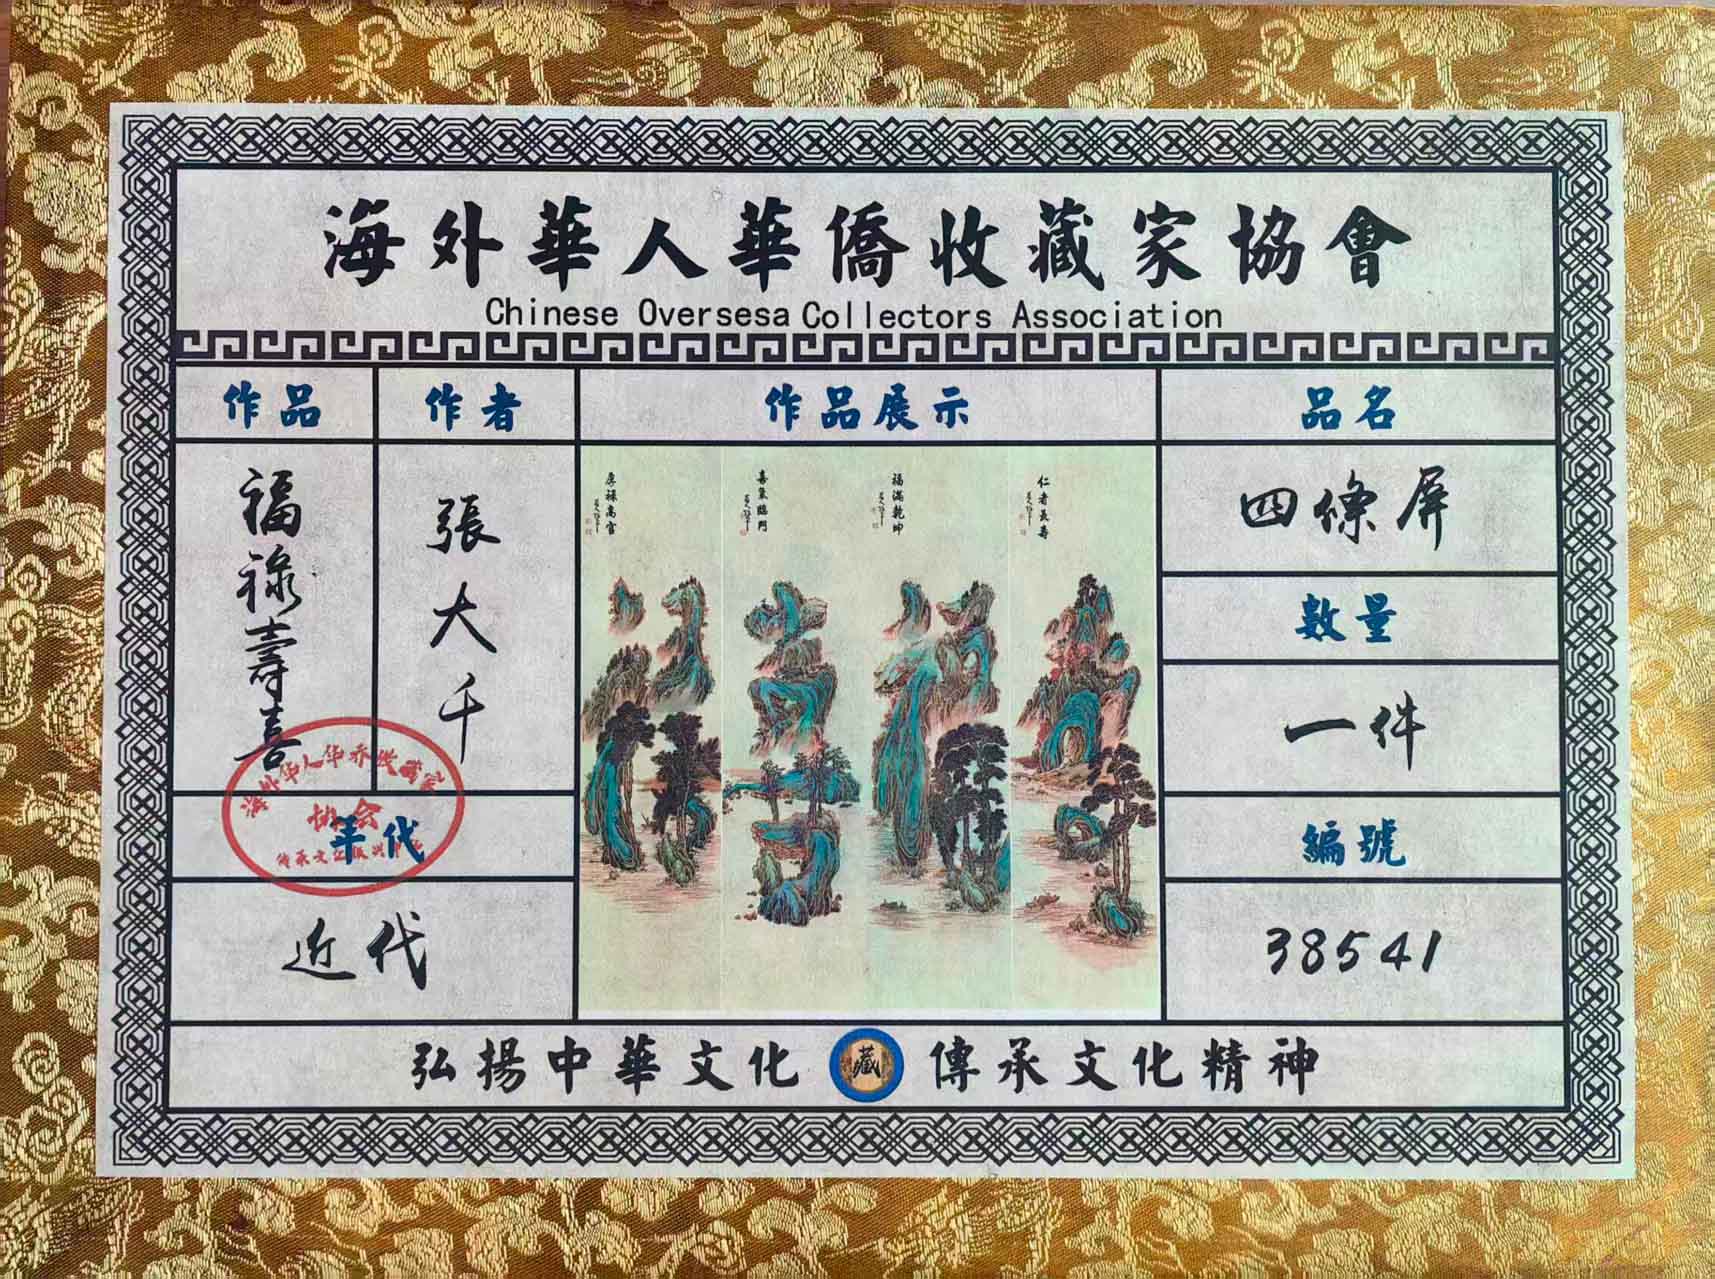 海外華人華僑收藏家協會
Chinese Oversesa Collectors Association
作品
作者
作品展示
品名
福禄壽喜
張大千
厚禄高官
喜氣臨門
福滿乾坤
仁者長壽
四條屏
數量
一件
海外华人华乔收藏家
协会
年代
近代
編號
38541
弘揚中華文化
藏
傳承文化精神